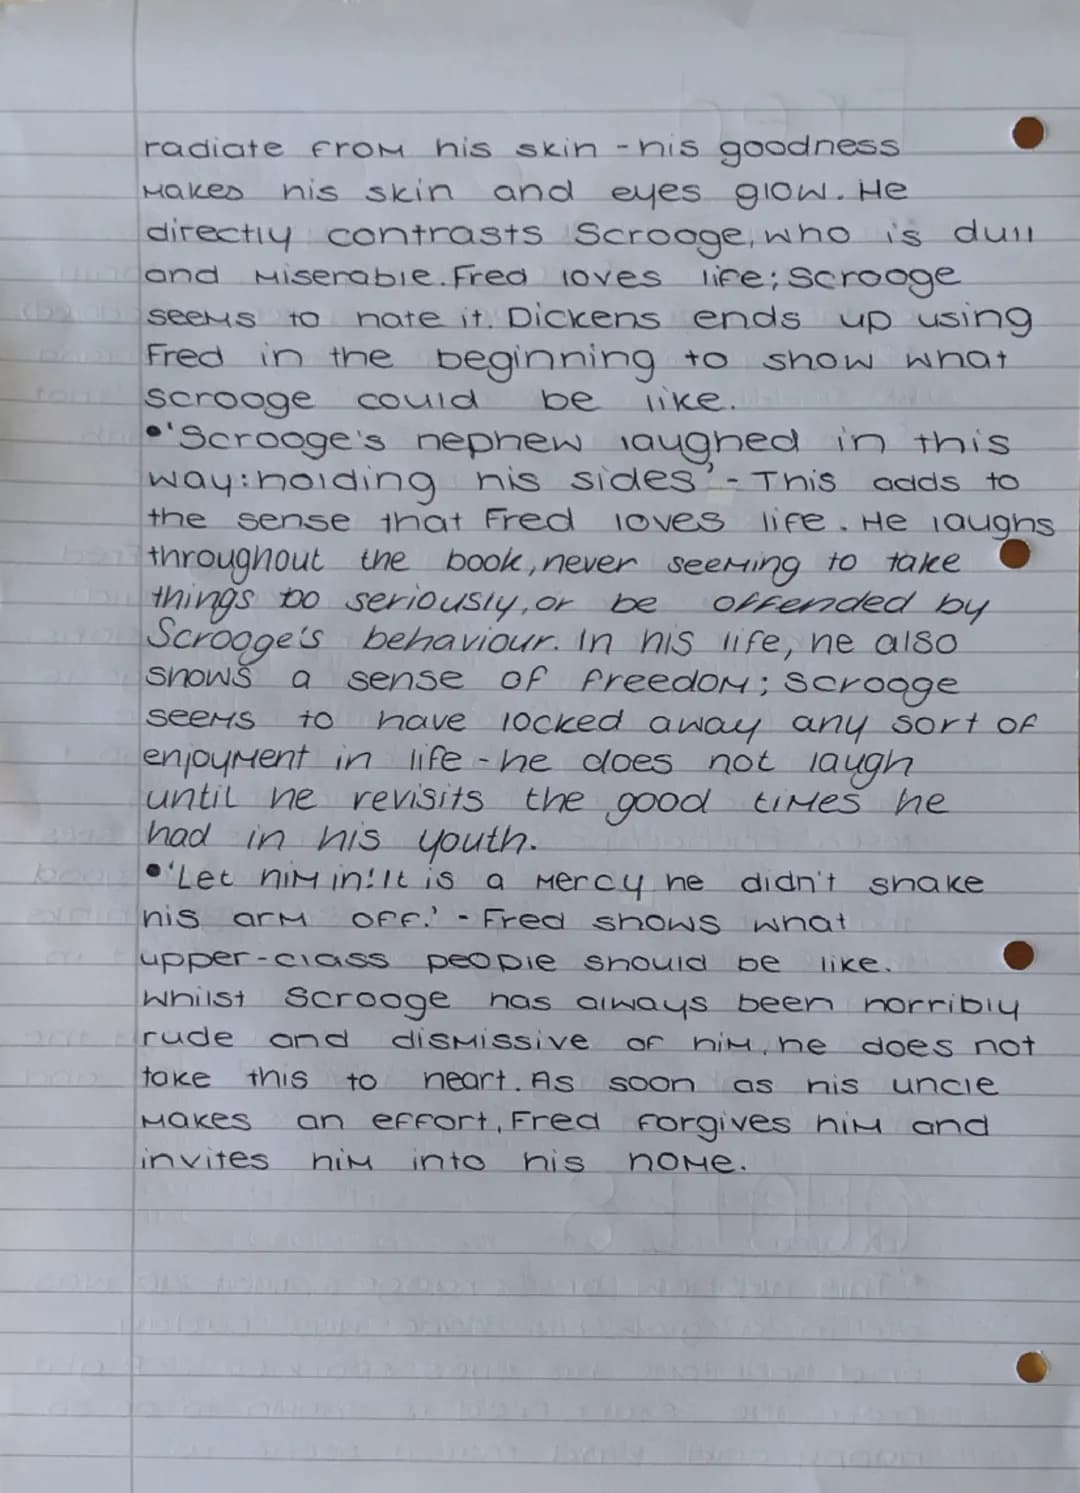 radiate from his skin - his goodness
makes his skin and eyes glow. He
directly contrasts Scrooge, who is dull
and miserable. Fred loves life; Scrooge
seems to hate it. Dickens ends up using
Fred in the beginning to show what
Scrooge could be like.
•'Scrooge's nephew laughed in this
way: holding his sides' - This adds to
the sense that Fred loves life. He laughs
throughout the book, never seeming to take
things too seriously, or be offended by
Scrooge's behaviour. In his life, he also
shows a sense of freedom; Scrooge
seems to have locked away any sort of
enjoyment in life - he does not laugh
until he revisits the good times he
had in his youth.
•'Let him in! It is a mercy he didn't shake
his arm off.' - Fred shows what
upper-class people should be like.
Whilst Scrooge has always been horribly
rude and dismissive of him, he does not
take this to heart. As soon as his uncle
makes an effort, Fred forgives him and
invites him into his home.